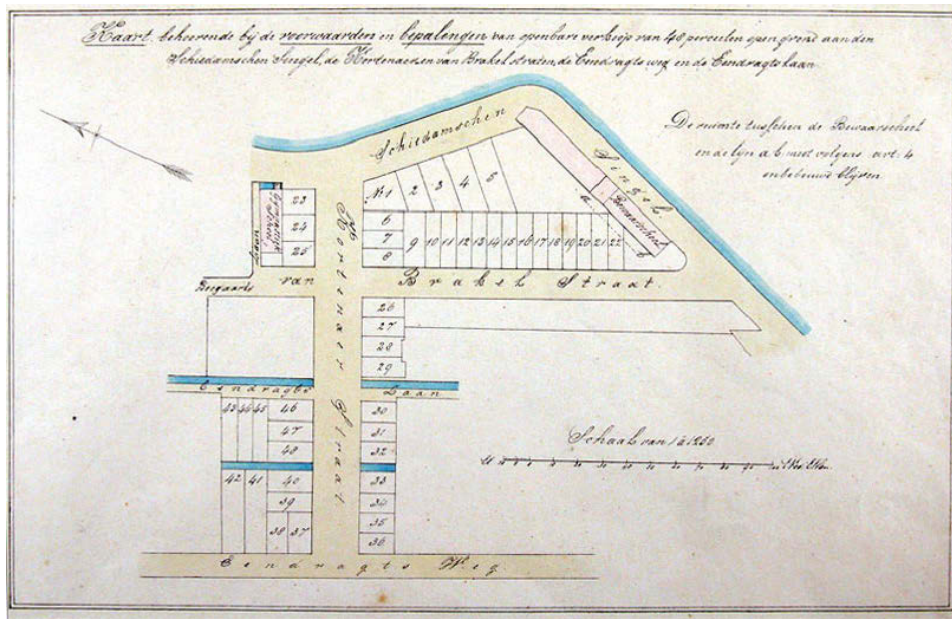 Kaart, behoorende bij de voorwaarden en bepalingen van openbare verkoop van 48 perceelen open grond aan den
Schiedamschen Singel, de Kortenaer en van Brakel straten, de Eendragts weg en de Eendragts laan.
De ruimte tusschen de Bewaarschool
en de lyn a.b. moet volgens art: 4
onbebouwd blijven
Schiedamschen
Singel
Bewaarschool
a
b
No 1 2 3 4 5
6
7
8
9 10 11 12 13 14 15 16 17 18 19 20 21 22
23
24
25
Laan
Bogaards
van Brakel Straat.
Kortenaer Straat
26
27
28
29
Eendragts Laan
43 44 45 46
47
48
30
31
32
42 41 40
39
38 37
33
34
35
36
Schaal van 1 à 1250
Eendragts Weg